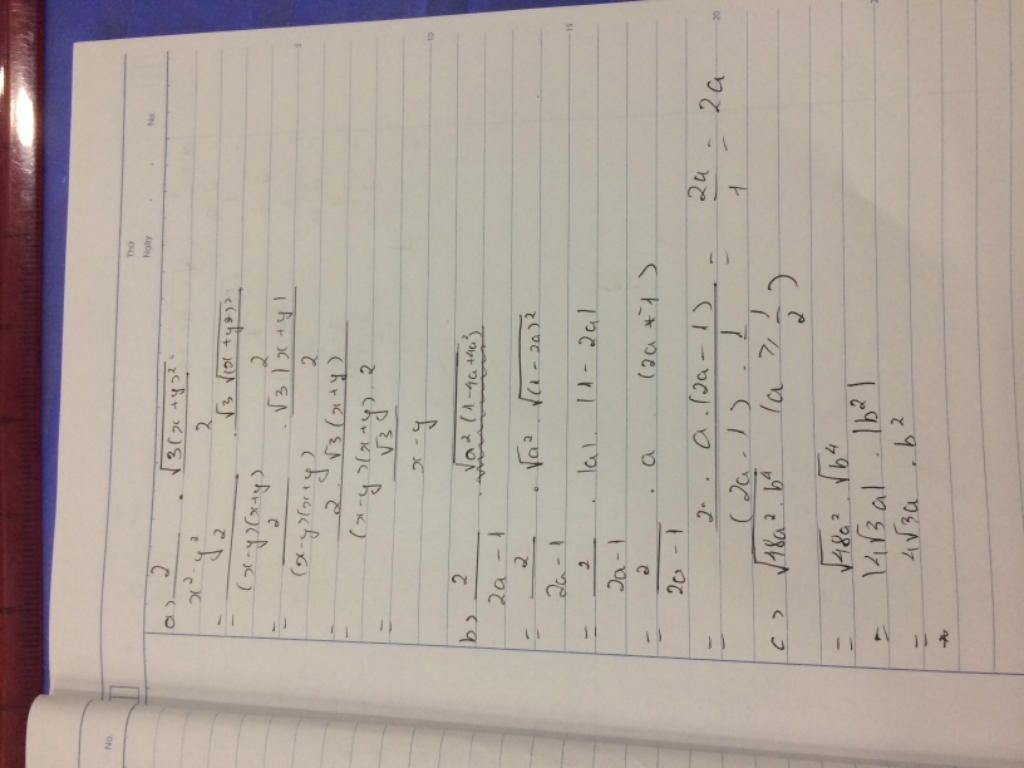 Thứ
Ngày
No.
5
10
15
20
No.
a> 2/(x² - y²) . √(3(x + y)²/2)
= 2/((x-y)(x+y)) . √3 √((x+y)²)/2
= 2/((x-y)(x+y)) . √3 |x + y|/2
= 2 . √3 (x + y)/((x-y)(x+y) . 2)
= √3/(x - y)
b> 2/(2a - 1) . √(a² (1 - 4a + 4a²))
= 2/(2a - 1) . √a² . √((1 - 2a)²)
= 2/(2a - 1) . |a| . |1 - 2a|
= 2/(2a - 1) . a (2a - 1)
= 2 . a . (2a - 1)/((2a - 1) . 1) = 2a/1 = 2a
c> √(48a² . b⁴) (a ≥ 1/2)
= √48a² . √b⁴
= |4√3a| . |b²|
= 4√3a . b²